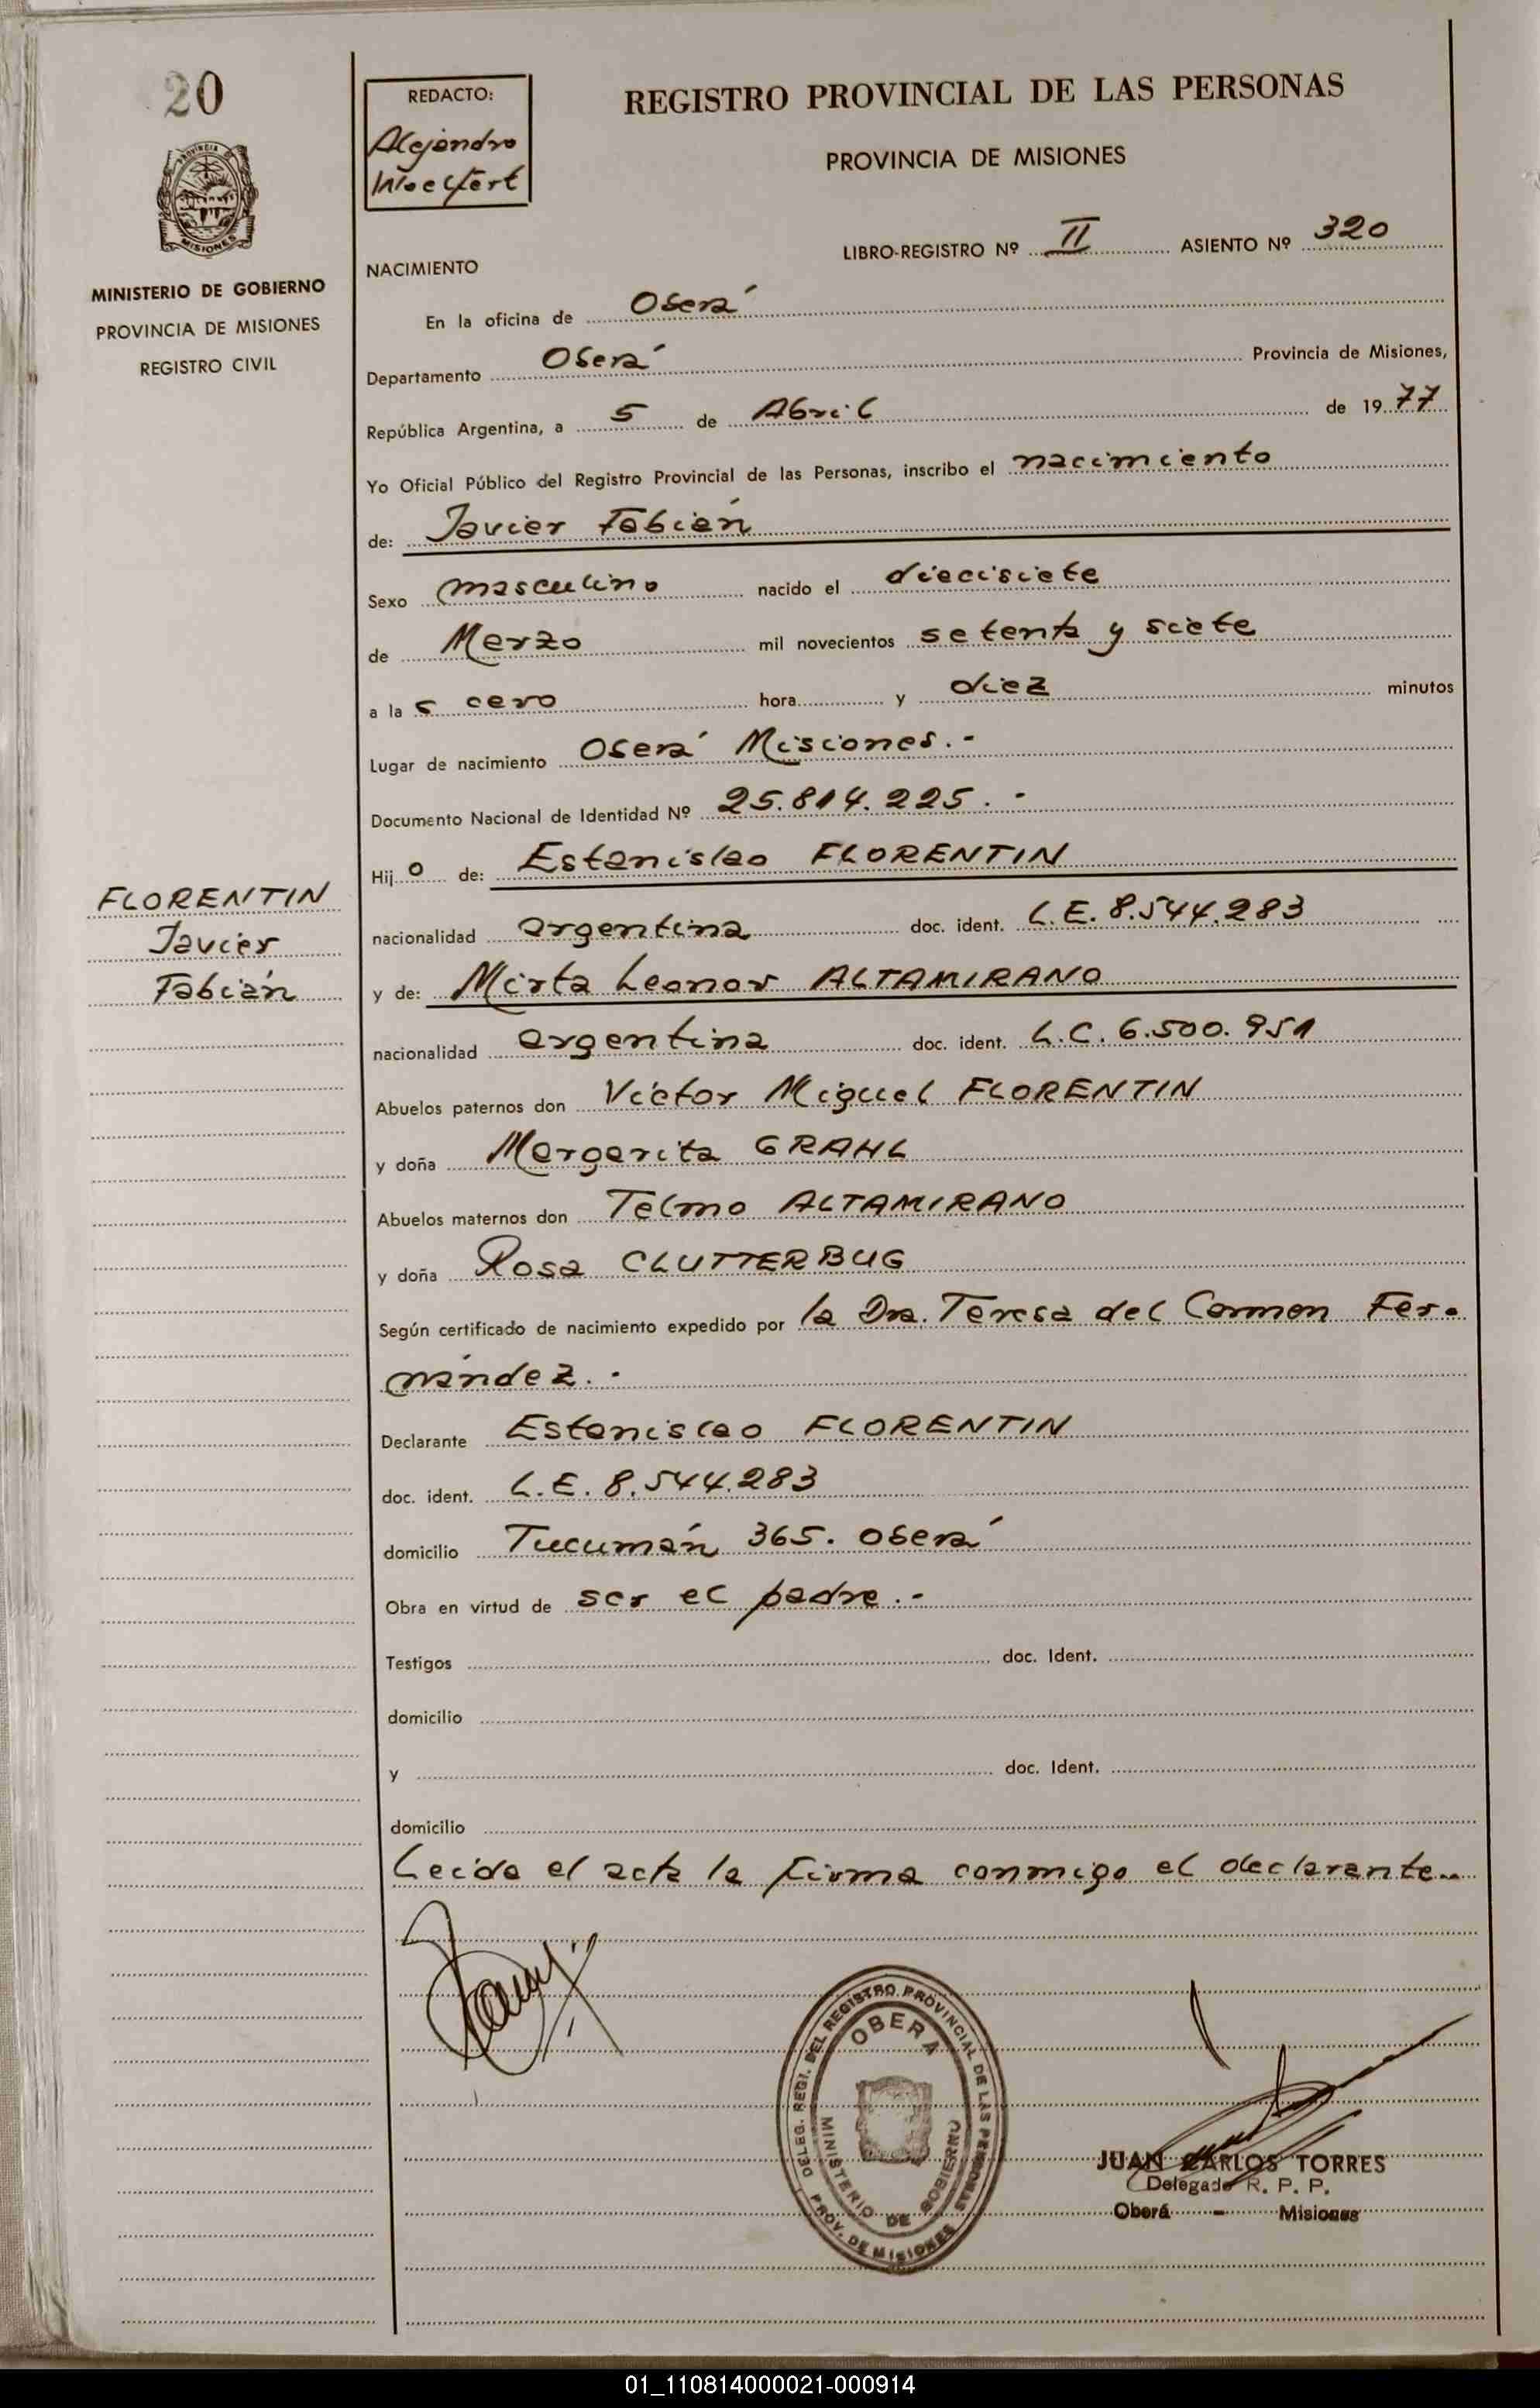 20
REDACTO:
Alejandro
PROVINCIA DE
MISIONES
MINISTERIO DE GOBIERNO
PROVINCIA DE MISIONES
REGISTRO CIVIL
REGISTRO PROVINCIAL DE LAS PERSONAS
PROVINCIA DE MISIONES
LIBRO-REGISTRO Nº II ASIENTO Nº 320
NACIMIENTO
En la oficina de Oberá
Departamento Oberá Provincia de Misiones,
República Argentina, a 5 de Abril de 1977
Yo Oficial Público del Registro Provincial de las Personas, inscribo el nacimiento
de: Javier Fabián
Sexo masculino nacido el diecisiete
de Marzo mil novecientos setenta y siete
a la s cero hora y diez minutos
Lugar de nacimiento Oberá Misiones.-
Documento Nacional de Identidad Nº 25.814.225.-
Hijo de: Estanislao FLORENTIN
FLORENTIN
Javier
Fabián
nacionalidad argentina doc. ident. L.E. 8.544.283
y de: Mirta Leonor ALTAMIRANO
nacionalidad argentina doc. ident. L.C. 6.500.951
Abuelos paternos don Victor Miguel FLORENTIN
y doña Margarita GRAHL
Abuelos maternos don Telmo ALTAMIRANO
y doña Rosa CLUTTERBUG
Según certificado de nacimiento expedido por la Dra. Teresa del Carmen Fer-
nández.-
Declarante Estanislao FLORENTIN
doc. ident. L.E. 8.544.283
domicilio Tucumán 365. Oberá
Obra en virtud de ser el padre.-
Testigos doc. Ident.
domicilio
y doc. Ident.
domicilio
Leida el acta la firma conmigo el declarante..
DELEG. REGI. DEL REGISTRO PROVINCIAL DE LAS PERSONAS
OBERA
MINISTERIO DE GOBIERNO
PROV. DE MISIONES
JUAN CARLOS TORRES
Delegado R. P. P.
Oberá - Misiones
01_110814000021-000914